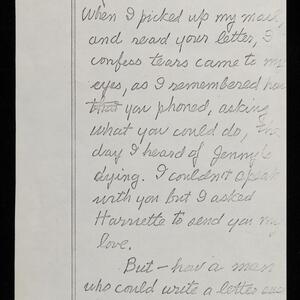 When I picked up my mail,
and read your letter, I
confess tears came to my
eyes, as I remembered how
you phoned, asking
what you could do, the
day I heard of Jenny's
dying. I couldn't speak
with you but I asked
Harriette to send you my
love.
But — how a man
who could write a letter such